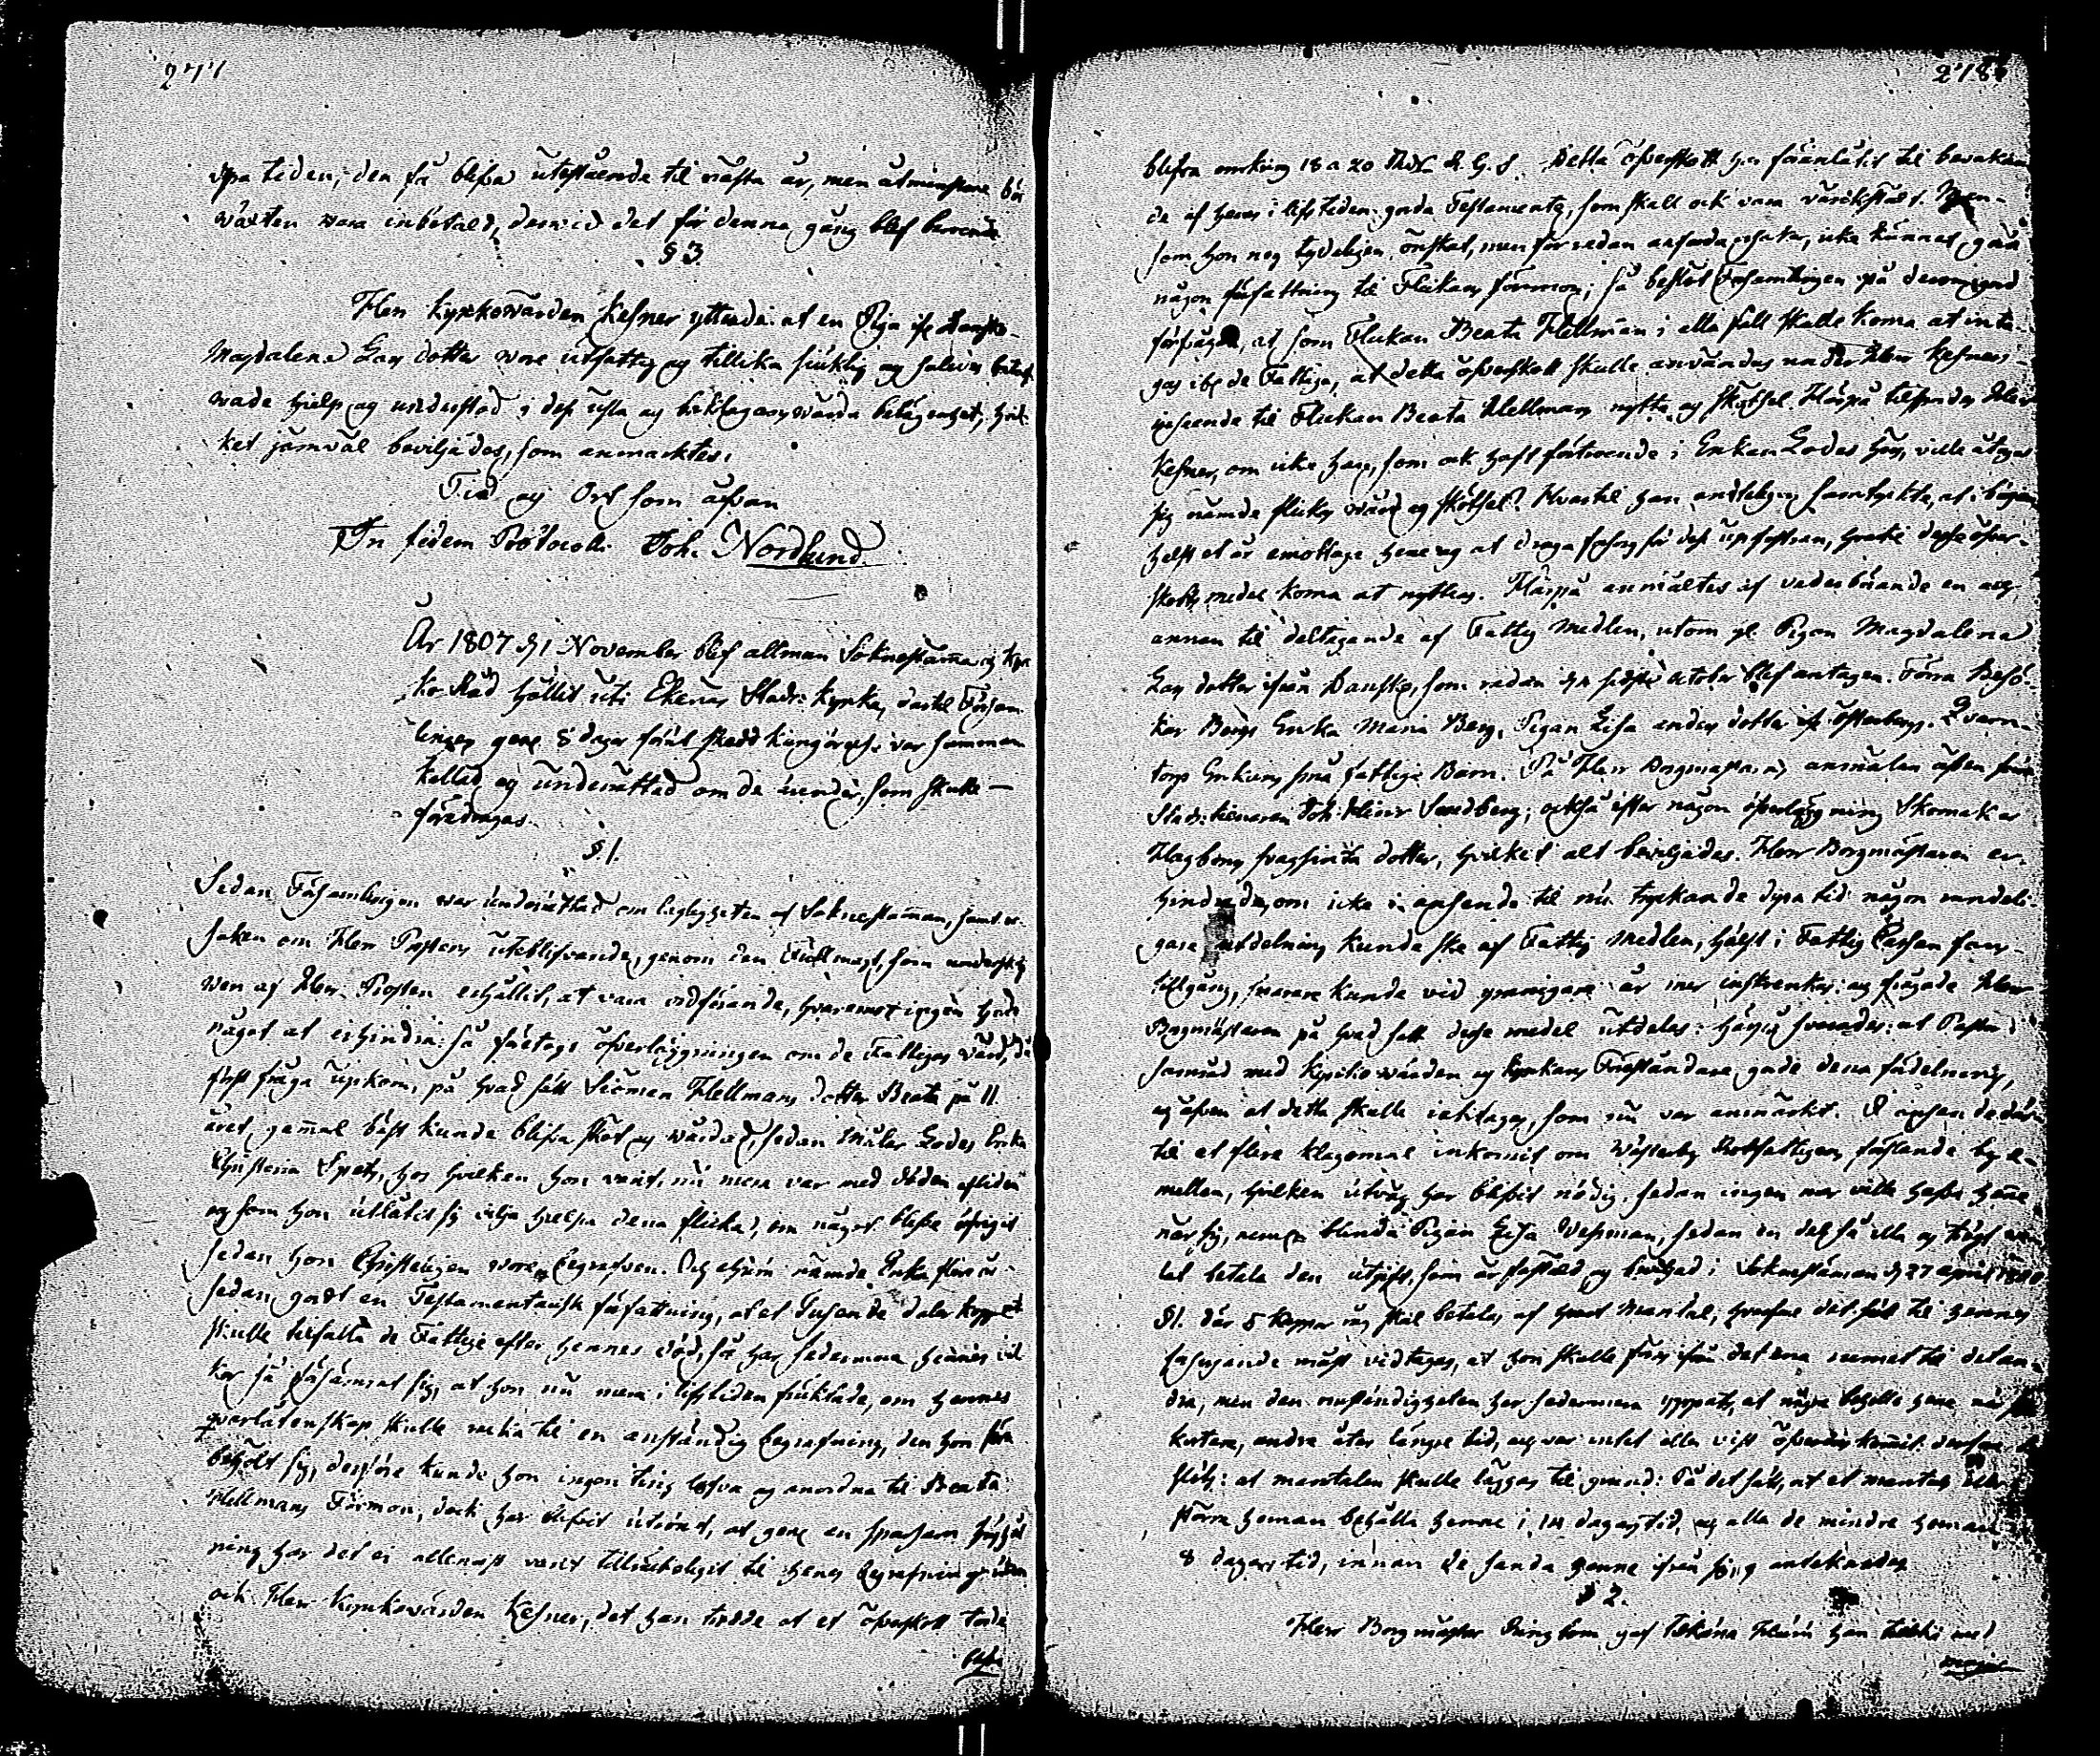 277
dyra tiden, den få blifva utestående til nästa år, men åtminstone bör
wäxten wara inbetald, derwid det för denna gång blef beroende
§ 3.
Herr Kyrkowärden Kefner yttrade at en Piga
Magdalena Lars dotter wore utfattig og tillika siuklig og således behöf-
wade hielp og understöd i dess usla og beklagansvärda belägenhet, hvil-
ket jämväl beviljades, som anmärktes.
Tid og Ort som ofvan
In fidem Protocolli Joh. Nordlund.
År 1807 d. 1 November blef allmän Soknestämma og Kyr-
ko Råd hållit uti Ekenäs Stads Kyrka, dertil Försam-
lingen genom 8 dagar förut skedd kungörelse var samman
kallad og underrättad om de ärender, som skulle
föredragas.
§. 1.
Sedan Församlingen war underrättad om lagligheten af Soknestämman, samt or-
saken om Herr Prostens uteblifvande, genom den Fullmagt, som
wen af Herr Prosten erhållit, at vara ordförande, hvaremot ingen hade
något at erhindra: så företogs öfverläggningen om de Fattigas vård, då
först fråga upkom, på hvad sätt Sióman Hellmans dotter Beata på 11
året gammal bäst kunde blifva skött og wårdad, sedan Målar Lodes Enka
Christina Spets, hos hvilken hon varit, nu mera var med döden afliden
og som hon utlåtit sig vilja hielpa denna flicka, om något blefve öfrigit
sedan hon Christeligen wore begrafven. Och ehuru nämde Enka flere år
sedan giordt en Testamentarisk författning, at et Tusende daler kopp:mt
skulle tilfalla de Fattige efter hennes död, så har sedermera hennes vil-
kor så försämrat sig, at hon nu mera i lifstiden fruktade, om hennes
qvarlåtenskap skulle räcka til en anständig begrafning, den hon före
behölt sig, derföre kunde hon ingen ting lofva og anordna til Beata
Hellmans Förmon, dock har blifvit utrönt, at genom en sparsam hushåll-
ning har det ei allenast varit tillräckeligit til hennes begrafning, utan
ock Herr Kyrkowärden Kefner, det han trodde at et öfverskott torde
blifva
278
blifva omkring 18 a 20 Rdr R. G. S. Detta öfverskott har föranlåtit til bevakan-
de af hennes i lifstiden giorda Testamente, som skall ock vara värckstäldt. Men
som hon nog tydeligen önskat, men för redan anförda orsaker, icke kunnat göra
någon författning til Flickans förmon; så beslöt Församlingen på derom giord
förfrågan, at som Flickan Beata Hellman i alla fall skulle koma at inta-
gas ibl. de Fattiga, at detta öfverskott skulle användas under Herr Kefners
inseende til Flickan Beata Hellmans nytta og skötsel. Härpå tilfrågades Herr
Kefner, om icke han, som ock haft förtroende i Enkan Lodes hus, ville åtaga
sig nämde flickas vård og skötsel? Hvartil han ändteligen samtyckte, at i början
helst et år emottaga henne og at draga försorg för dess upfostran, hvartil desse öfver-
skotts medel koma at nyttjas. Härpå anmältes af vederbörande en og
annan til deltagande af Fattig Medlen, utom gl. Pigan Magdalena
Lars dotter ifrån Danskog, som redan d. 11 sidste October blef antagen. Förra Besö-
kar Bergs Enka Maria Berg, Pigan Lisa Anders dotter Österberg. Qvarn-
torps Enkans små fattige Barn. På Herr Borgmästarens anmälan äfven förra
Stads: tienaren Joh. Hinr. Sandberg; också efter någon öfverläggning Skomakar
Hagbergs svagsinta dotter, hvilket alt beviljades. Herr Borgmästaren er-
hindrade, om icke i anseende til nu tryckande dyra tid någon ymnigare
utdelning kunde ske af Fattig Medlen, hälst i Fattig Cassan fans
tillgång, snarare kunde vid ymnigare år mer inskränkas: og frågade Herr
Borgmästaren på hvad sätt desse medel utdelas: härpå svarades: at Pastor i
samråd med Kyrkio wärden og Kyrkans Föreståndare giorde denna fördelning,
og äfven at detta skulle iakttagas, som nu var anmärkt. I anseende der-
til at flere klagomål inkomit om Westerby Rotefattigas
mellan, hvilken utväg har blifvit nödig, sedan ingen mer ville hafva henne
när sig, nemln. blinda Pigan Lisa Wessman, sedan en del så illa og trögt
tal betala den utgift, som är fastäld og beviljad i Soknestämman d. 27 April
§1. där 5 kappor råg skal betalas af hvart mantal, hvarföre det til hennes
måst vidtagas, at hon skulle föras ifrån det ena rummet til det an-
dra, men den omständigheten har sedermera yppats, at några behålla henne
kortare, andra åter längre tid, og var intet eller vist öfverenskomit derföre
slöts: at mantalen skulle läggas til grund: På det sätt, at et mantal eller
större heman behålla henne i 14 dagars tid, og alla de mindre heman
8 dagars tid, innan de sända henne ifrån sig, antecknades
§ 2.
Herr Borgmästar Ringbom gaf tilkänna huru han med